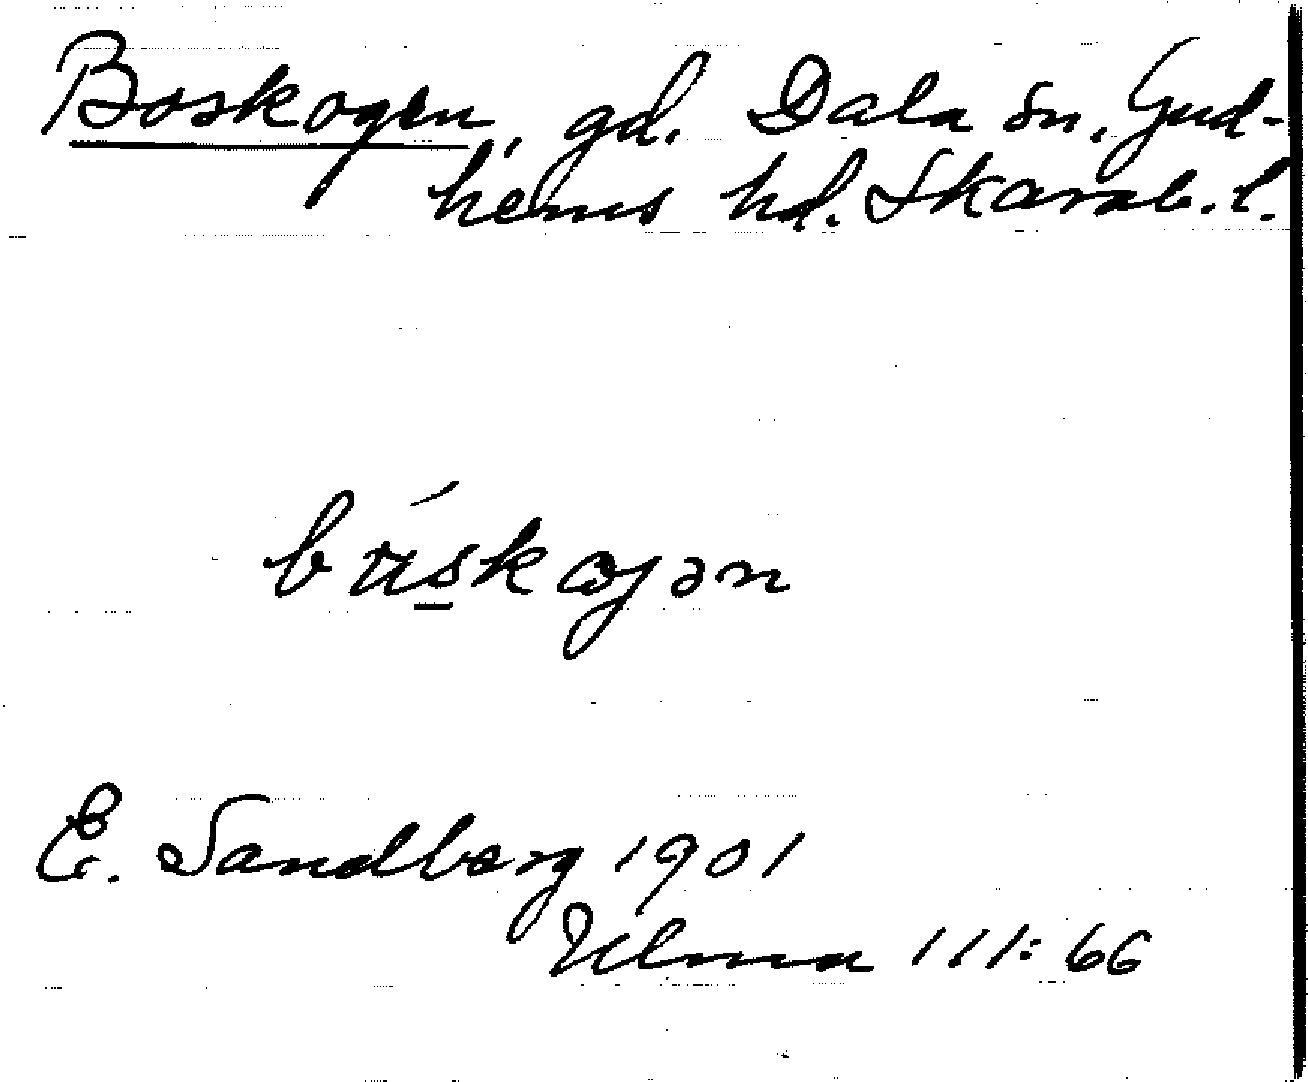 Boskogen, gd. Dala sn. Gud-
hems hd. Skarab. l.
E. Sandberg 1901
Ulma 111:66